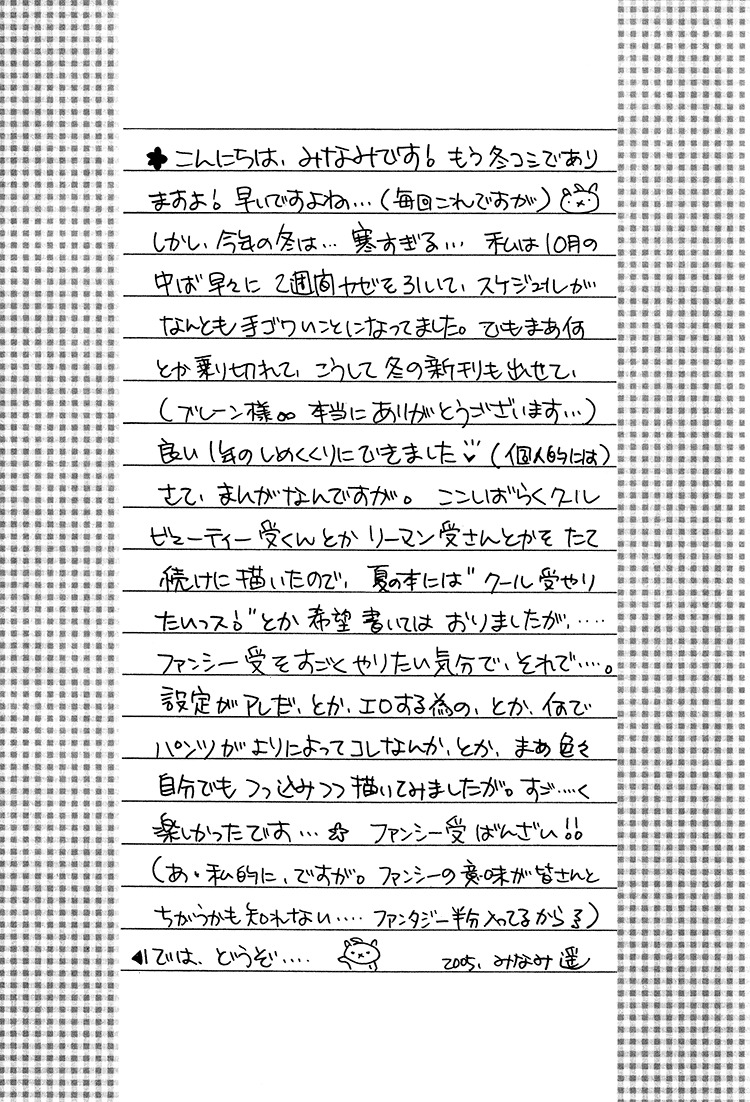 ✽ こんにちは、みなみです! もう冬コミであり
ますよ! 早いですよね…(毎回これですが)
しかし、今年の冬は… 寒すぎる… 私は10月の
中ば早々に 2週間カゼを引いて、スケジュールが
なんとも手ゴワいことになってました。でもまあ何
とか乗り切れて、こうして冬の新刊も出せて、
(ブレーン様∞ 本当にありがとうございます…)
良い1年のしめくくりにできました♡ (個人的には)
さて、まんがなんですが。 ここしばらくクール
ビューティー受くんとか リーマン受さんとかを たて
続けに描いたので、夏の本には"クール受やり
たいっス!"とか希望書いては おりましたが、‥‥
ファンシー受をすごくやりたい気分で、それで‥‥。
設定がアレだ、とか、エロする為の、とか、何で
パンツがよりによってコレなんか、とか、まあ色々
自分でもつっ込みつつ描いてみましたが。すご‥‥く
楽しかったです…☆ ファンシー受ばんざい!!
(あ・私的に、ですが。ファンシーの意味が皆さんと
ちがうかも知れない‥‥ ファンタジー半分入ってるから)
◀では、どうぞ‥‥ 2005、みなみ遥